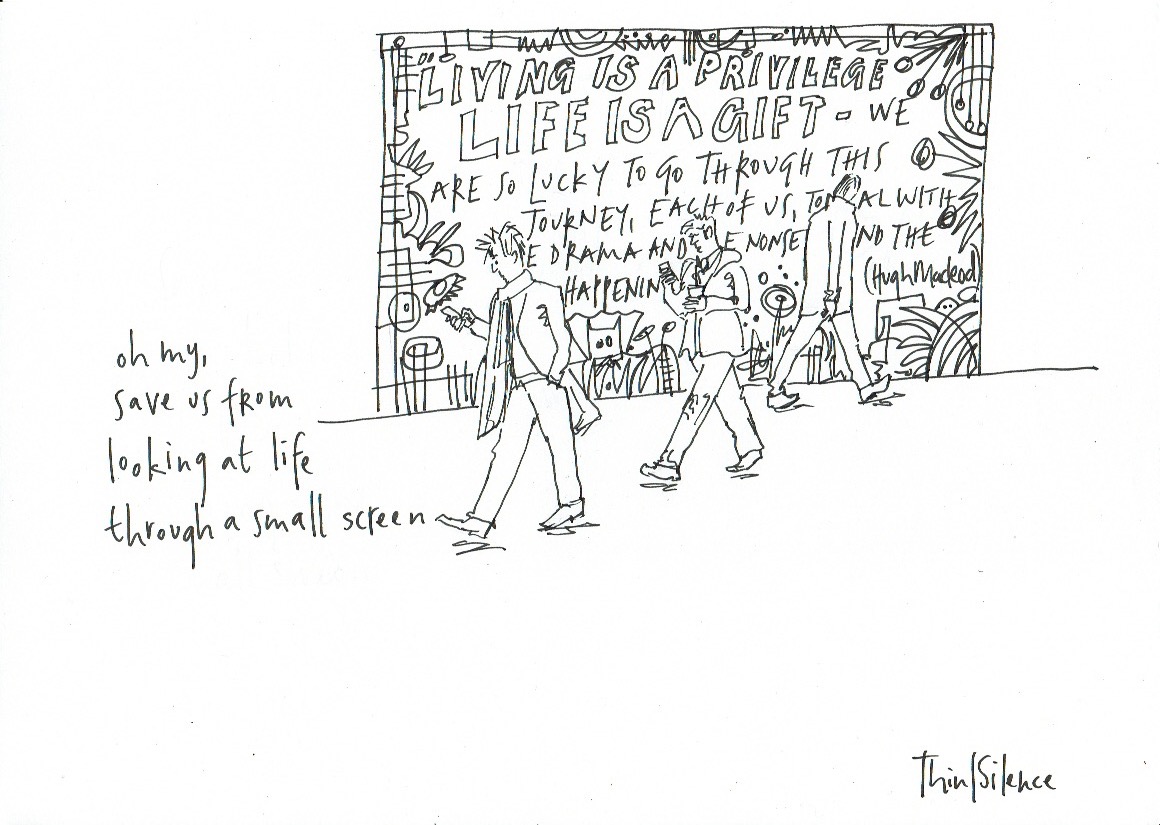 "LIVING IS A PRIVILEGE
LIFE IS A GIFT - WE
ARE SO LUCKY TO GO THROUGH THIS
JOURNEY, EACH OF US, TO AL WITH
E DRAMA AND E NONSE ND THE
HAPPENIN (Hugh Macleod)
oh my,
save us from
looking at life
through a small screen
ThinkSilence